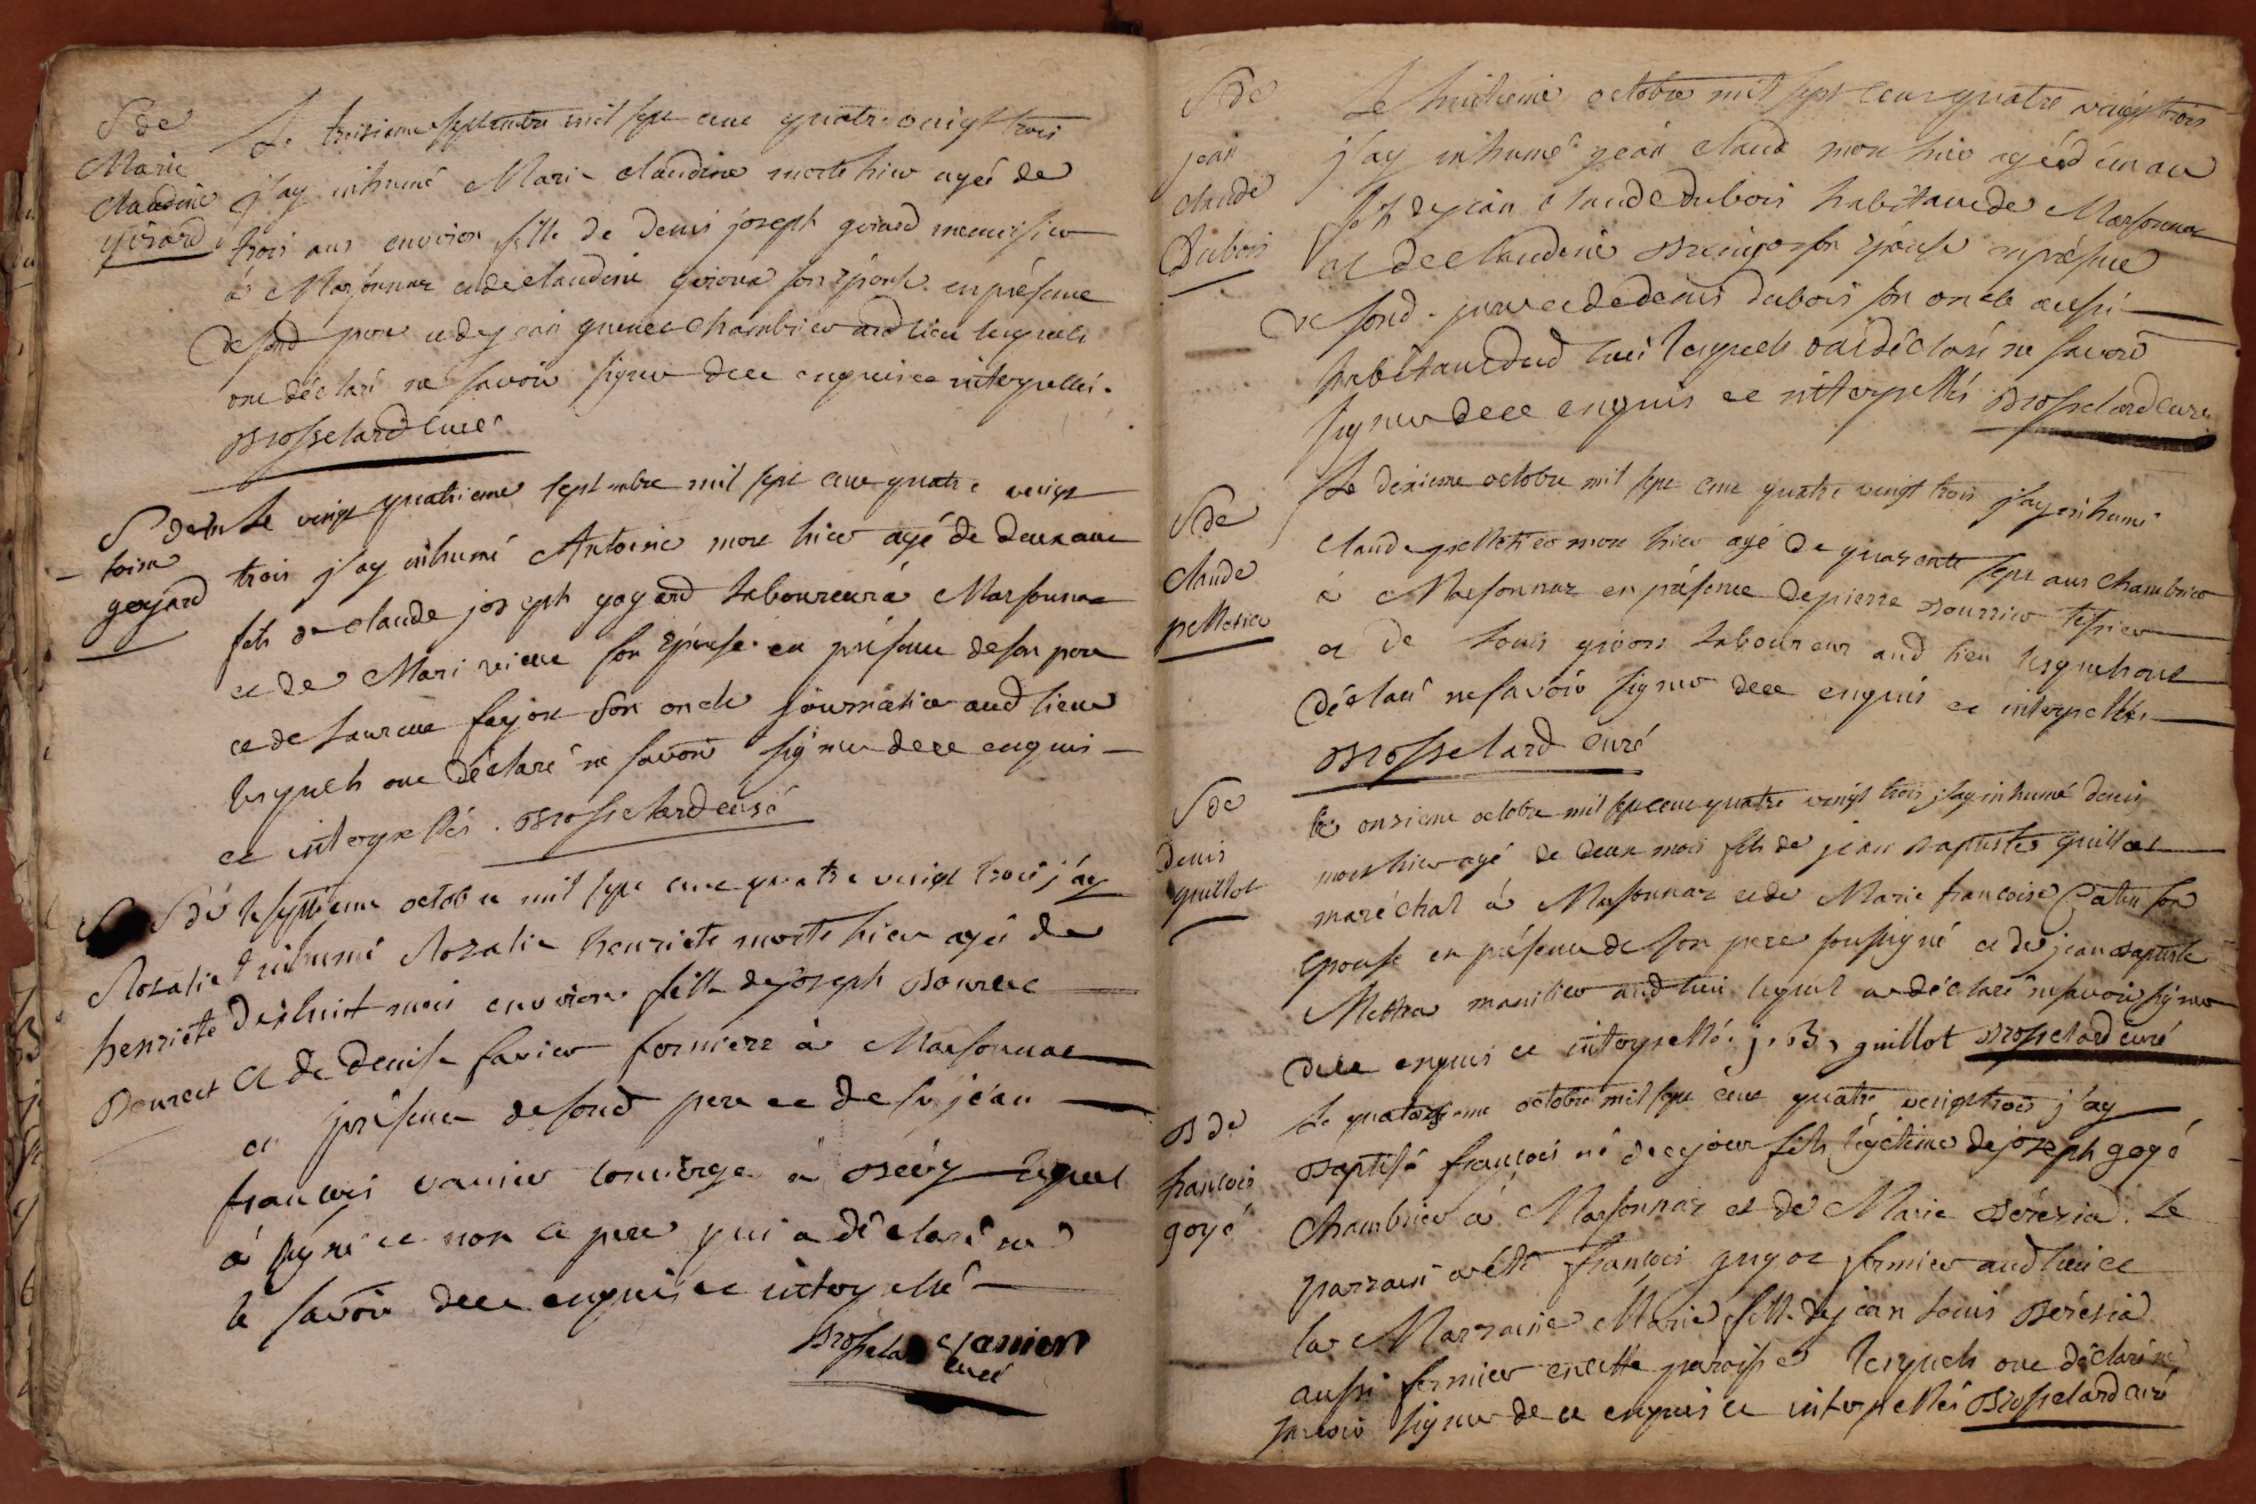 S de
Marie
Claudine
girard
Le troisieme septembre mil sept cent quatre vingt trois
j'ay inhumé Marie claudine morte hier ageé de
trois ans environ fille de denis joseph girard menuisier
à Marsonnaz et de claudine son épouse en présence
de sond. pere et de jean chambrier aud lieu lesquels
ont déclaré ne savoir signer dece enquis et interpellés.
Brosselard curé
S de An
toine
goyard
Le vingt quatrieme septembre mil sept cent quatre vingt
trois j'ay inhumé Antoine mort hier agé de deux ans
fils de claude joseph goyard laboureur à Marsonnaz
et de Marie son épouse en présence de son pere
et de Laurent son oncle journalier aud lieu
lesquels ont déclaré ne savoir signer dece enquis
et interpellés. Brosselard curé
S de
Rozalie
henriete
Bouret
le septieme octobre mil sept cent quatre vingt trois j'ay
inhumé Rozalie henriete morte hier ageé de
dixhuit mois environ fille de joseph Bouret
et de denise favier fermiers à Marsonnaz
en présence de sond pere et de sr jean
francois vanier concierge à Brécy lequel
à signé et non le pere qui a déclaré ne
le savoir dece enquis et interpellé
Brosselard curé
vanier
S de
jean
claude
Dubois
Le huitieme octobre mil sept cent quatre vingt trois
j'ay inhumé jean claude mort hier agé d'un an
fils de jean claude dubois habitant de Marsonnaz
et de claudine son épouse en présence
de sond. pere et de denis dubois son oncle aussi
habitant dud lieu lesquels ont déclaré ne savoir
signer dece enquis et interpellés Brosselard curé
S de
claude
pelletier
Le dixieme octobre mil sept cent quatre vingt trois j'ay inhumé
claude pelletier mort hier agé de quarante sept ans chambrier
à Marsonnaz en présence de pierre Bourrier tessier
et de Louis laboureur aud lieu lesquels ont
déclaré ne savoir signer dece enquis et interpellés
Brosselard curé
S de
denis
guillot
le onzieme octobre mil sept cent quatre vingt trois j'ay inhumé denis
mort hier agé de deux mois fils de jean baptiste guillot
maréchal à Marsonnaz et de Marie francoise Catin son
épouse en présence de son pere soussigné et de jean baptiste
Mettra manilier aud lieu lequel a déclaré ne savoir signer
dece enquis et interpellé. j. B. guillot Brosselard curé
B de
francois
goyé
Le quatorzieme octobre mil sept cent quatre vingt trois j'ay
Baptisé francois né de ce jour fils légitime de joseph goyé
chambrier à Marsonnaz et de Marie Bérézia. Le
parrain a été francois guyot fermier aud lieu et
la Marraine Marie fille de jean Louis Berézia
aussi fermier en cette paroisse lesquels ont déclaré ne
savoir signer de ce enquis et interpellés Brosselard curé